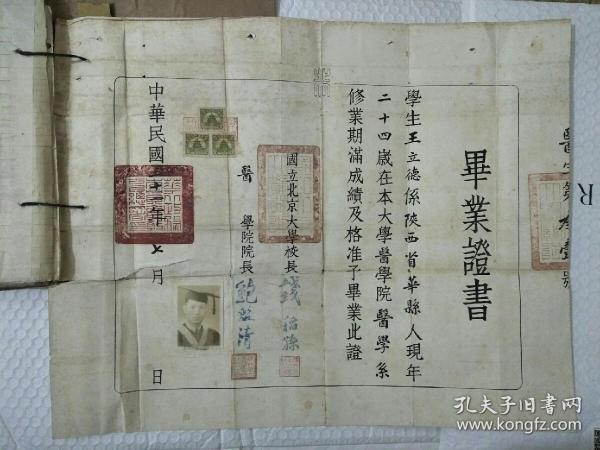 畢業證書
學生王立德係陝西省華縣人現年
二十四歲在本大學醫學院醫學系
修業期滿成績及格准予畢業此證
國立北京大學校長 錢稻孫
醫學院院長 鮑鑑清
中華民國三十三年七月 日
R
孔夫子旧书网
www.kongfz.com